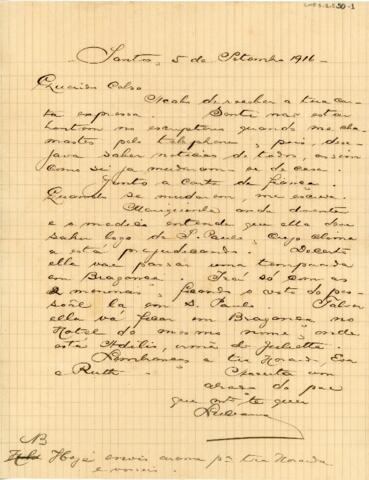 Santos, 5 de Setembro 1916
Querido Celso
Acabo de receber a tua car-
ta expressa. Sentí não estar
hontem no escriptorio quando me cha-
mastes pelo telephone, pois, dese-
java saber noticias de todos, assim
como se já mudaram-se de casa.
Junto a carta de fiança.
Quando se mudarem, me escreva.
anda doente
e o medico entende que ella deve
sahir logo de S. Paulo, cujo clima
a está prejudicando. Decerto
ella vae passar uma temporada
em Bragança. Irá só com as
2 meninas, ficando o resto do pes-
soal lá em S. Paulo. Talvez
ella vá ficar em Bragança no
Hotel do mesmo nome, onde
está irmã de Julieta.
Lembranças a tia
e Ruth. Acceita um
abraço do pae
que mto te quer
NB
Hoje enviei p.a tia